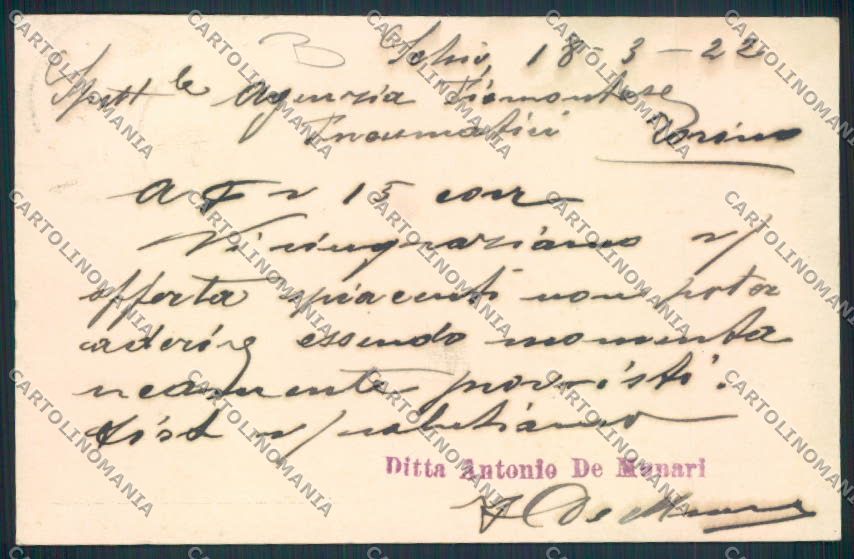 Schio, 18-3-22
Spett le Agenzia Piemontese
Pneumatici Torino
A F v 15 corr
Vi ringraziamo v/
offerta spiacenti non poter
aderire essendo momenta
neamente provvisti.
Dist v/ salutiamo
Ditta Antonio De Munari
De Munari